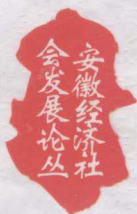 安徽经济社
会发展论丛